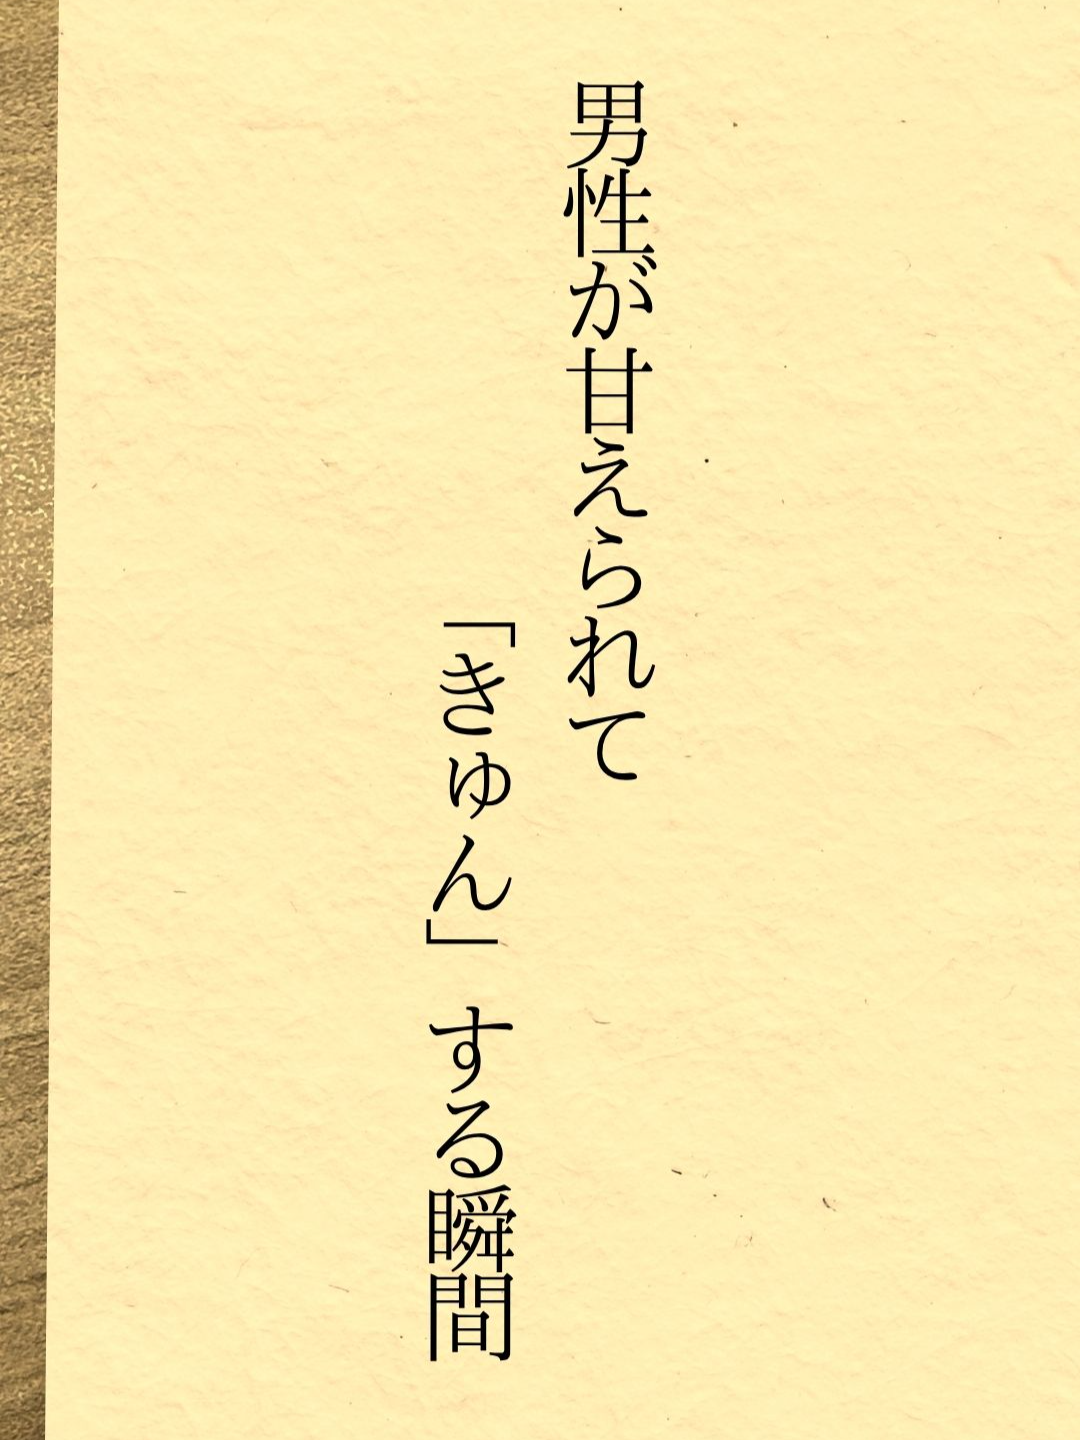 男性が甘えられて
「きゅん」する瞬間